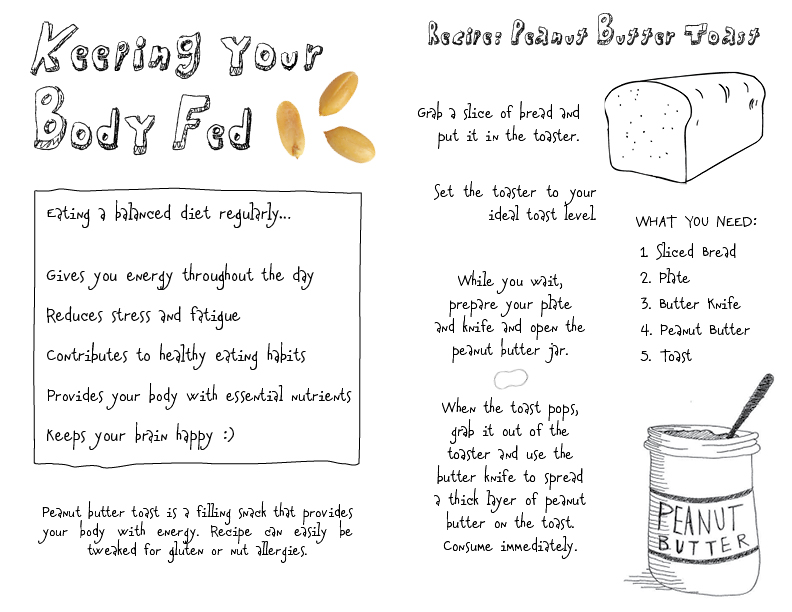 Keeping Your
Body Fed
Eating a balanced diet regularly...
Gives you energy throughout the day
Reduces stress and fatigue
Contributes to healthy eating habits
Provides your body with essential nutrients
Keeps your brain happy :)
Peanut butter toast is a filling snack that provides
your body with energy. Recipe can easily be
tweaked for gluten or nut allergies.
Recipe: Peanut Butter Toast
Grab a slice of bread and
put it in the toaster.
Set the toaster to your
ideal toast level.
While you wait,
prepare your plate
and knife and open the
peanut butter jar.
When the toast pops,
grab it out of the
toaster and use the
butter knife to spread
a thick layer of peanut
butter on the toast.
Consume immediately.
WHAT YOU NEED:
1. Sliced Bread
2. Plate
3. Butter Knife
4. Peanut Butter
5. Toast
PEANUT
BUTTER